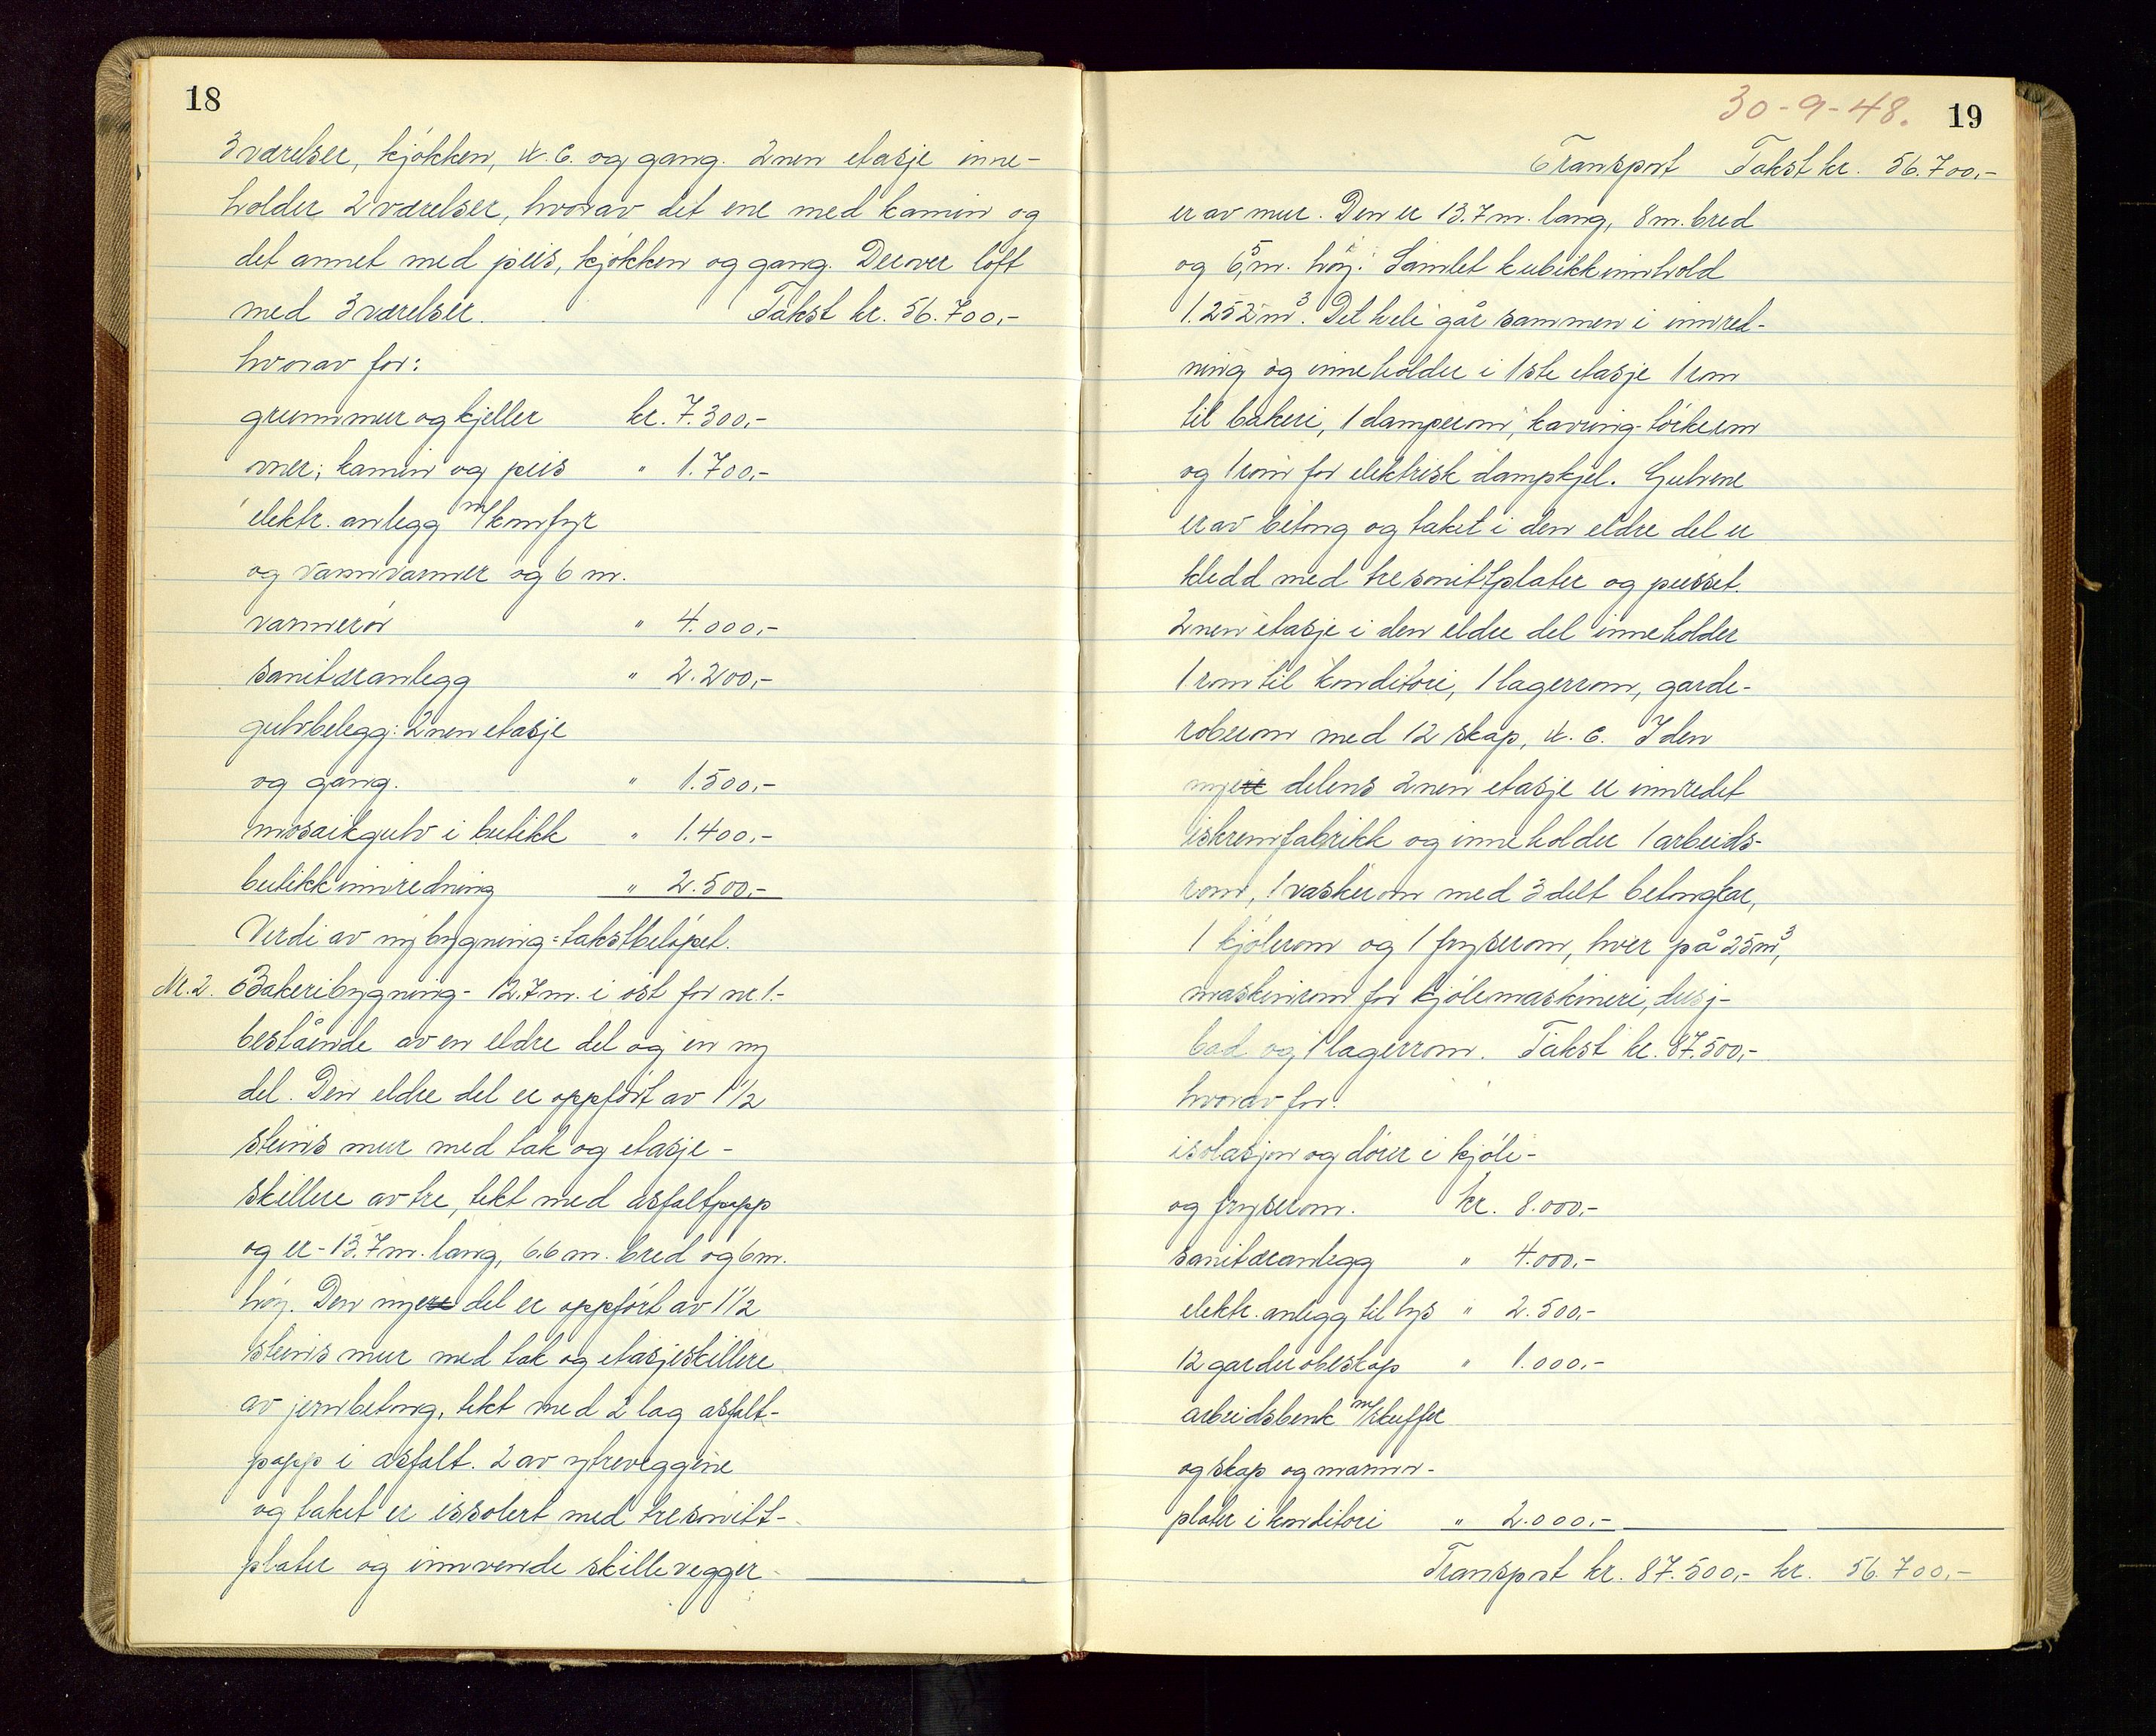 18
3 værelser, kjökken, W.C. og gang. 2nen etasje inne-
holder 2 værelser, hvorav det ene med kamin og
det annet med peis, kjökken og gang. Derover loft
med 3 værelser. Takst kr. 56.700,-
hvorav for:
grunnmur og kjeller kr. 7.300,-
ovner, kamin og peis " 1.700,-
elektr. anlegg m/komfyr
og vannvarmer og 6 m.
varmerör " 4.000,-
sanitæranlegg " 2.200,-
gulvbelegg: 2nen etasje
og gang. " 1.500,-
mosaikgulv i butikk " 1.400,-
butikkinnredning " 2.500,-
Verdi av nybygning = takstbelöpet.
Nr. 2. Bakeribygning - 12.7 m. i öst for nr. 1. -
bestående av en eldre del og en ny
del. Den eldre del er oppfört av 1 1/2
steins mur med tak og etasje-
skillere av tre, tekt med asfaltpapp
og er - 13.7 m. lang, 6.6 m. bred og 6 m.
höy. Den nyere del er oppfört av 1 1/2
steins mur med tak og etasjeskillere
av jernbetong, tekt med 2 lag asfalt-
papp i asfalt. 2 av ytreveggene
og taket er issolert med tresonitt-
plater og innvende skillevegger
30-9-48.
19
Transport Takst kr. 56.700,-
er av mur. Den er 13.7 m. lang, 8 m. bred
og 6,5 m. höy. Samlet kubikkinnhold
1.252 m³. Det hele går sammen i innred-
ning og inneholder i 1ste etasje 1 rom
til bakeri, 1 damperom, kavring-törkerom
og 1 rom for elektrisk dampkjel. Gulvene
er av betong og taket i den eldre del er
kledd med tresonittplater og pusset.
2nen etasje i den eldre del inneholder
1 rom til konditori, 1 lagerrom, garde-
roberom med 12 skap, W.C. I den
nyere delens 2nen etasje er innredet
iskremfabrikk og inneholder 1 arbeids-
rom, 1 vaskerom med 3 delt betongkar,
1 kjölerom og 1 fryserom, hver på 25 m³,
maskinrom for kjölemaskineri, dusj-
bad og 1 lagerrom. Takst kr. 87.500,-
hvorav for:
isolasjon og dörer i kjöle-
og fryserom. kr. 8.000,-
sanitæranlegg " 4.000,-
elektr. anlegg til lys " 2.500,-
12 garderobeskap " 1.000,-
arbeidsbenk m/skuffer
og skap og marmor-
plater i konditori " 2.000,-
Transport kr. 87.500,- kr. 56.700,-